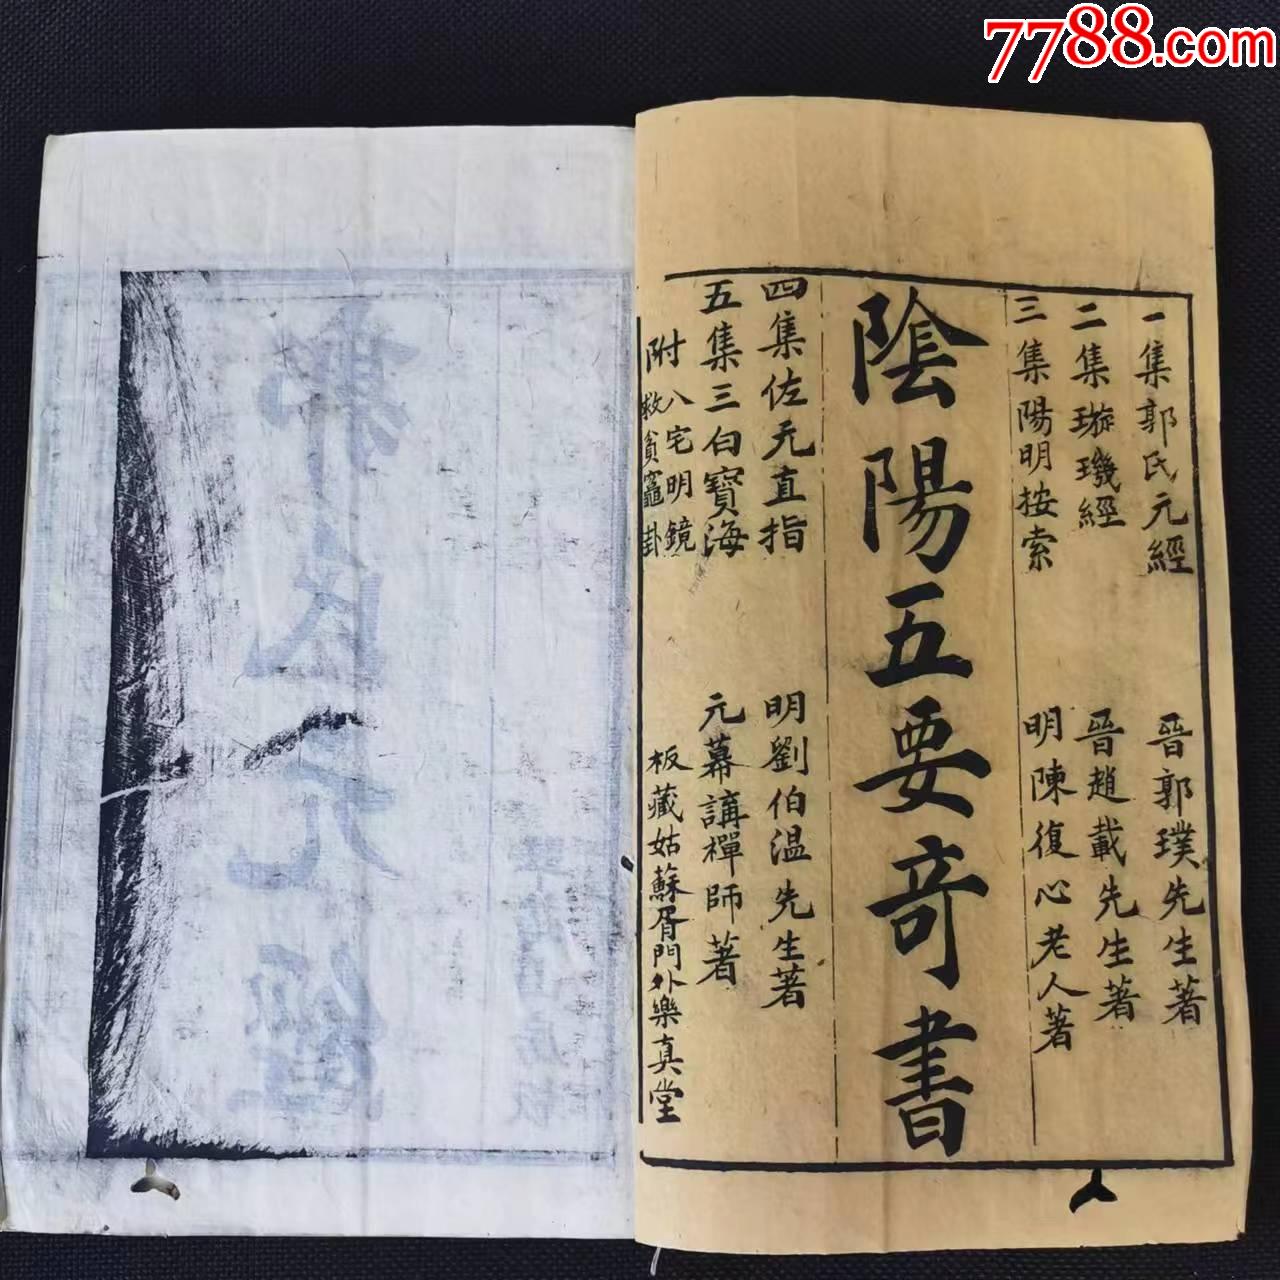 7788.com
一集郭氏元經 晉郭璞先生著
二集璇璣經 晉趙載先生著
三集陽明按索 明陳復心老人著
陰陽五要奇書
四集佐元直指 明劉伯温先生著
五集三白寶海 元幕講禪師著
附八宅明鏡
救貧竈卦
板藏姑蘇胥門外樂真堂
郭氏元經